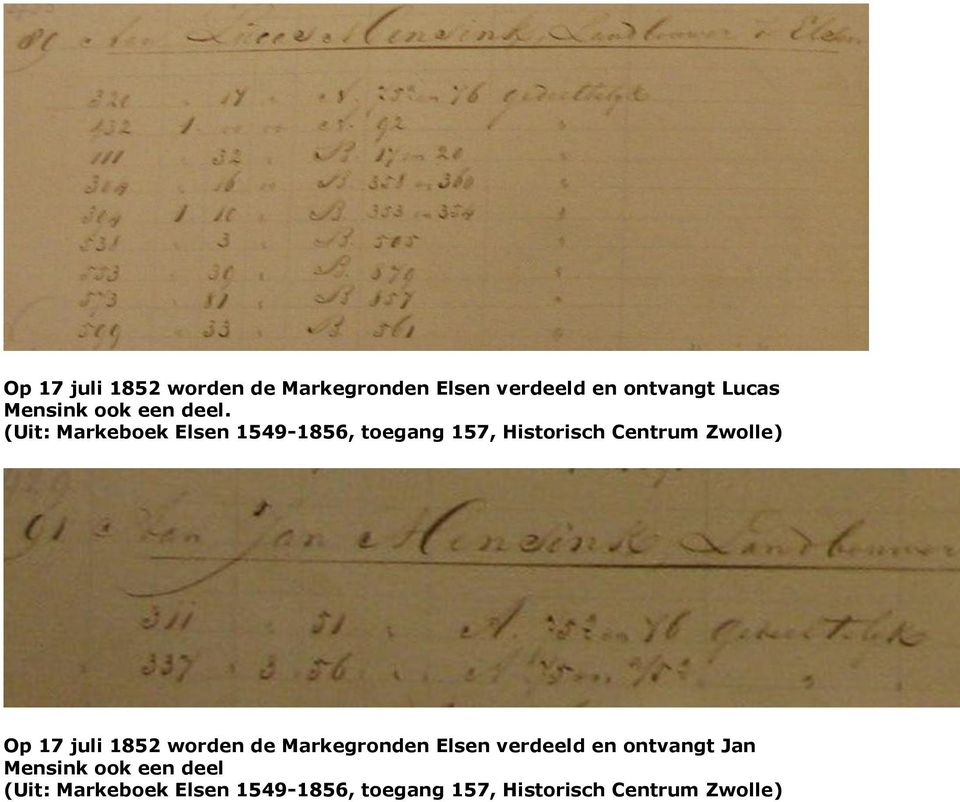 Aan Lucas Mensink, Landbouwer Elsen
320 " 17 " A. 752 en 76 gedeeltelijk
432 1 " " A. 92 "
111 " 32 " B. 17 en 20 "
304 " 16 " B. 358 en 360 "
304 1 10 " B. 353 en 354 "
538 " 3 " B. 505 "
553 " 30 " B. 870 "
573 " 81 " B. 857 "
509 " 33 " B. 561 "
Op 17 juli 1852 worden de Markegronden Elsen verdeeld en ontvangt Lucas
Mensink ook een deel.
(Uit: Markeboek Elsen 1549-1856, toegang 157, Historisch Centrum Zwolle)
91 Aan Jan Mensink Landbouwer
311 " 51 " A. 752 en 76 gedeeltelijk
337 " 3 56 " A.
Op 17 juli 1852 worden de Markegronden Elsen verdeeld en ontvangt Jan
Mensink ook een deel
(Uit: Markeboek Elsen 1549-1856, toegang 157, Historisch Centrum Zwolle)